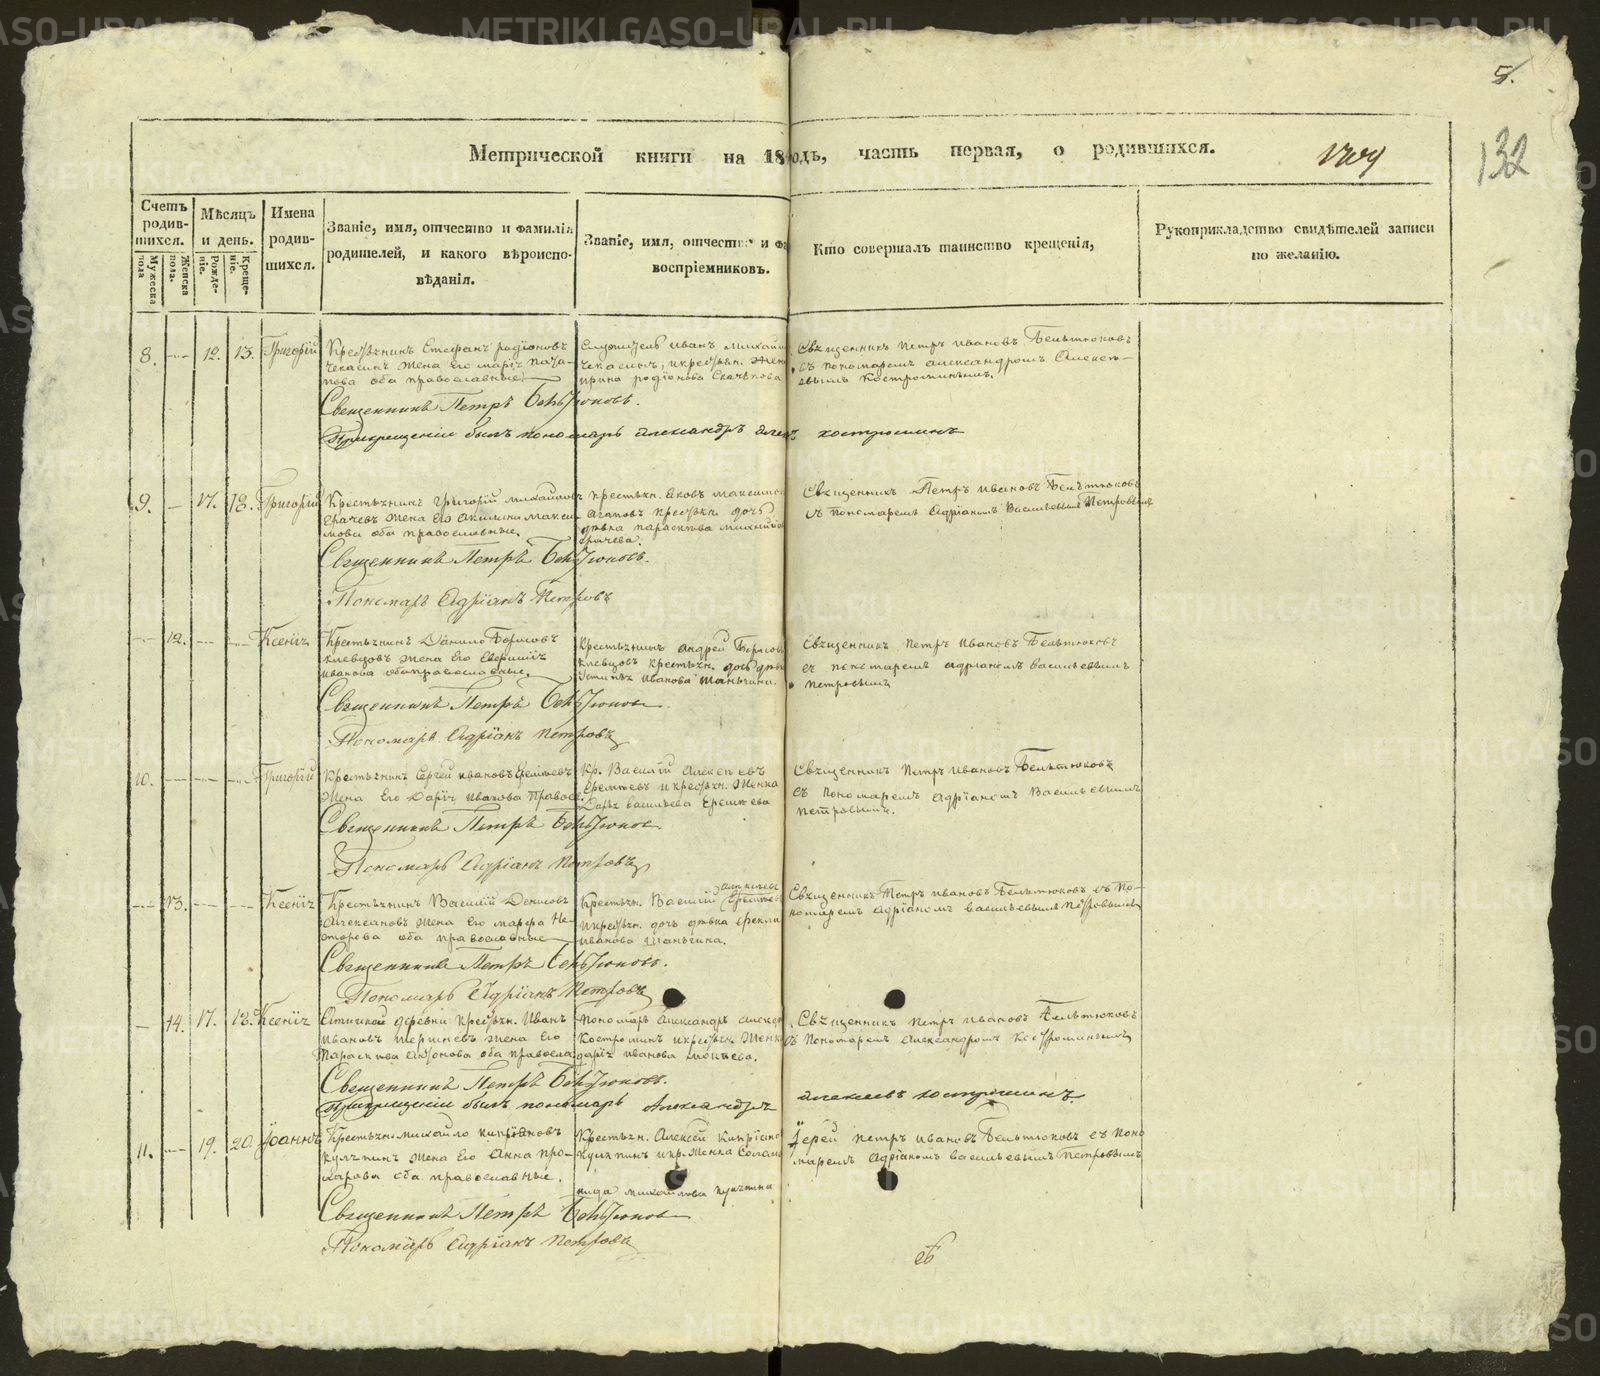 5.
132
Метрической книги на 18 одъ, часть первая, о родившихся.
Счетъ родив-шихся.
Мужеска пола
Женска пола.
Мѣсяцъ и день.
Рожде-ніе.
Креще-ніе.
Имена родив-шихся.
Званіе, имя, отчество и фамилія
родителей, и какого вѣроиспо-
вѣданія.
Званіе, имя, отчество и фа
воспріемниковъ.
Кто совершалъ таинство крещенія,
Рукоприкладство свидѣтелей записи
по желанію.
8. 12. 13. Григорій
Крестьянинъ Стефанъ родіоновъ
Чекасинъ жена его марія
оба православные.
Служитель иванъ михайл
Чекасинъ, и крестьян. жен
ирина родіонова
Священникъ петръ ивановъ Бельтюковъ
съ пономаремъ александромъ Алексѣ-
евымъ Костроминымъ.
Священникъ Петръ Бельтюковъ.
При крещеніи былъ пономарь александръ алек костроминъ
9. 17. 18. Григорій
Крестьянинъ григорій михайловъ
жена его акилина макси-
мова оба православные.
крестьян. Яковъ максимо
Агаповъ крестьян. дочь
дѣвка параскева михайлова
Священникъ Петръ ивановъ Бельтюковъ
съ пономаремъ Адріаномъ Васильевымъ Петровымъ
Священникъ Петръ Бельтюковъ.
Пономарь Адріанъ Петровъ
12. Ксенія
Крестьянинъ Данило Борисовъ
клевцовъ жена его Евфимія
иванова оба православные.
крестьянинъ андрей Борисовъ
клевцовъ крестьян. дочь дѣвк
Устинья иванова шаньгина.
Священникъ петръ ивановъ Бельтюковъ
съ пономаремъ адріаномъ васильевымъ
петровымъ
Священникъ Петръ Бельтюковъ
Пономарь Адріанъ петровъ
10. Григорій
Крестьянинъ Сергей ивановъ Еремѣевъ
жена его Дарія иванова Правос.
Кр. Василій Алексѣевъ
Еремѣевъ и крестьян. женка
Дарья васильева Еремѣева
Священникъ петръ ивановъ Бельтюковъ
съ пономаремъ адріаномъ Васильевымъ
петровымъ.
Священникъ Петръ Бельтюковъ
Пономарь Адріанъ петровъ
13. Ксенія
Крестьянинъ Василій Денисовъ
Алексановъ жена его марфа Не-
сторова оба православные
Крестьян. Василій Алексѣевъ
Еремѣевъ
и крестьян. дочь дѣвка фекла
иванова шаньгина.
Священникъ Петръ ивановъ Бельтюковъ съ по-
номаремъ адріаномъ васильевымъ Петровымъ
Священникъ Петръ Бельтюковъ.
Пономарь Адріанъ Петровъ
14. 17. 18. Ксенія
деревни крестьян. Иванъ
Ивановъ жена его
Параскева оба правосла
пономарь Александръ алексѣ
Костроминъ и крестьян. женка
дарія иванова
Священникъ петръ ивановъ Бельтюковъ
съ Пономаремъ Александромъ Костроминымъ
Священникъ Петръ Бельтюковъ.
При крещеніи былъ пономарь Александръ алексѣевъ костроминъ.
11. 19. 20. Іоаннъ
Крестьян. михайло кипріановъ
жена его Анна про-
харова оба православные.
Крестьян. Алексѣй кипріано
и кр. женка Солом
нида михайлова
Іерей петръ ивановъ Бельтюковъ съ поно
маремъ Адріаномъ васильевымъ Петровымъ
Священникъ Петръ Бельтюковъ
Пономарь Адріанъ петровъ
METRIKI.GASO-URAL.RU